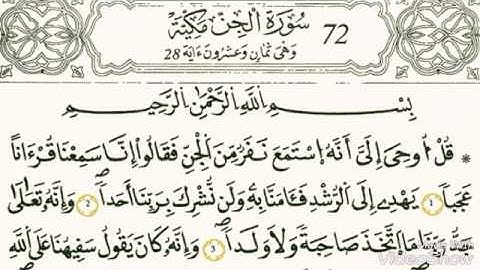 سُورَةُ الْجِنِّ مَكِّيَّةٌ 72
وَهِيَ ثَمَانٍ وَعِشْرُونَ ءَايَةً 28
بِسْمِ اللَّهِ الرَّحْمَٰنِ الرَّحِيمِ
* قُلُ اوحِيَ إِلَيَّ أَنَّهُ اُسْتَمَعَ نَفَرٌ مِّنَ اَلْجِنِّ فَقَالُواْ إِنَّا سَمِعْنَا قُرْءَاناً
عَجَباً 1 يَهْدِے إِلَى اَلرُّشْدِ فَـَٔامَنَّا بِهِ وَلَن نُّشْرِكَ بِرَبِّنَا أَحَداً 2 وَإِنَّهُ تَعَالَىٰ
رَبِّنَا مَا اَتَّخَذَ صَاحِبَةً وَلَا وَلَداً 3 وَإِنَّهُ كَانَ يَقُولُ سَفِيهُنَا عَلَى اَللَّهِ
VideoShow